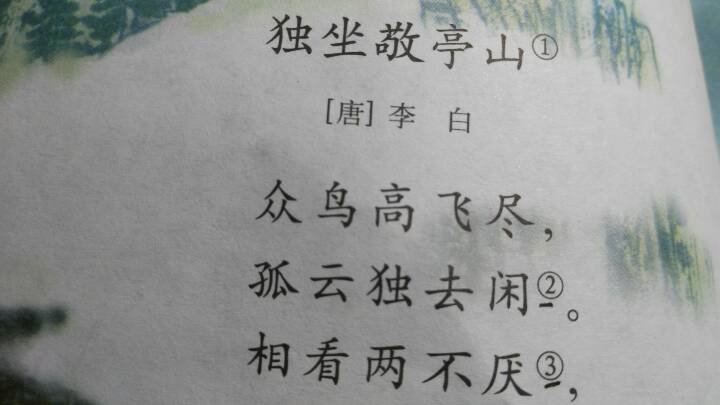 独坐敬亭山①
[唐] 李 白
众鸟高飞尽，
孤云独去闲②。
相看两不厌③，